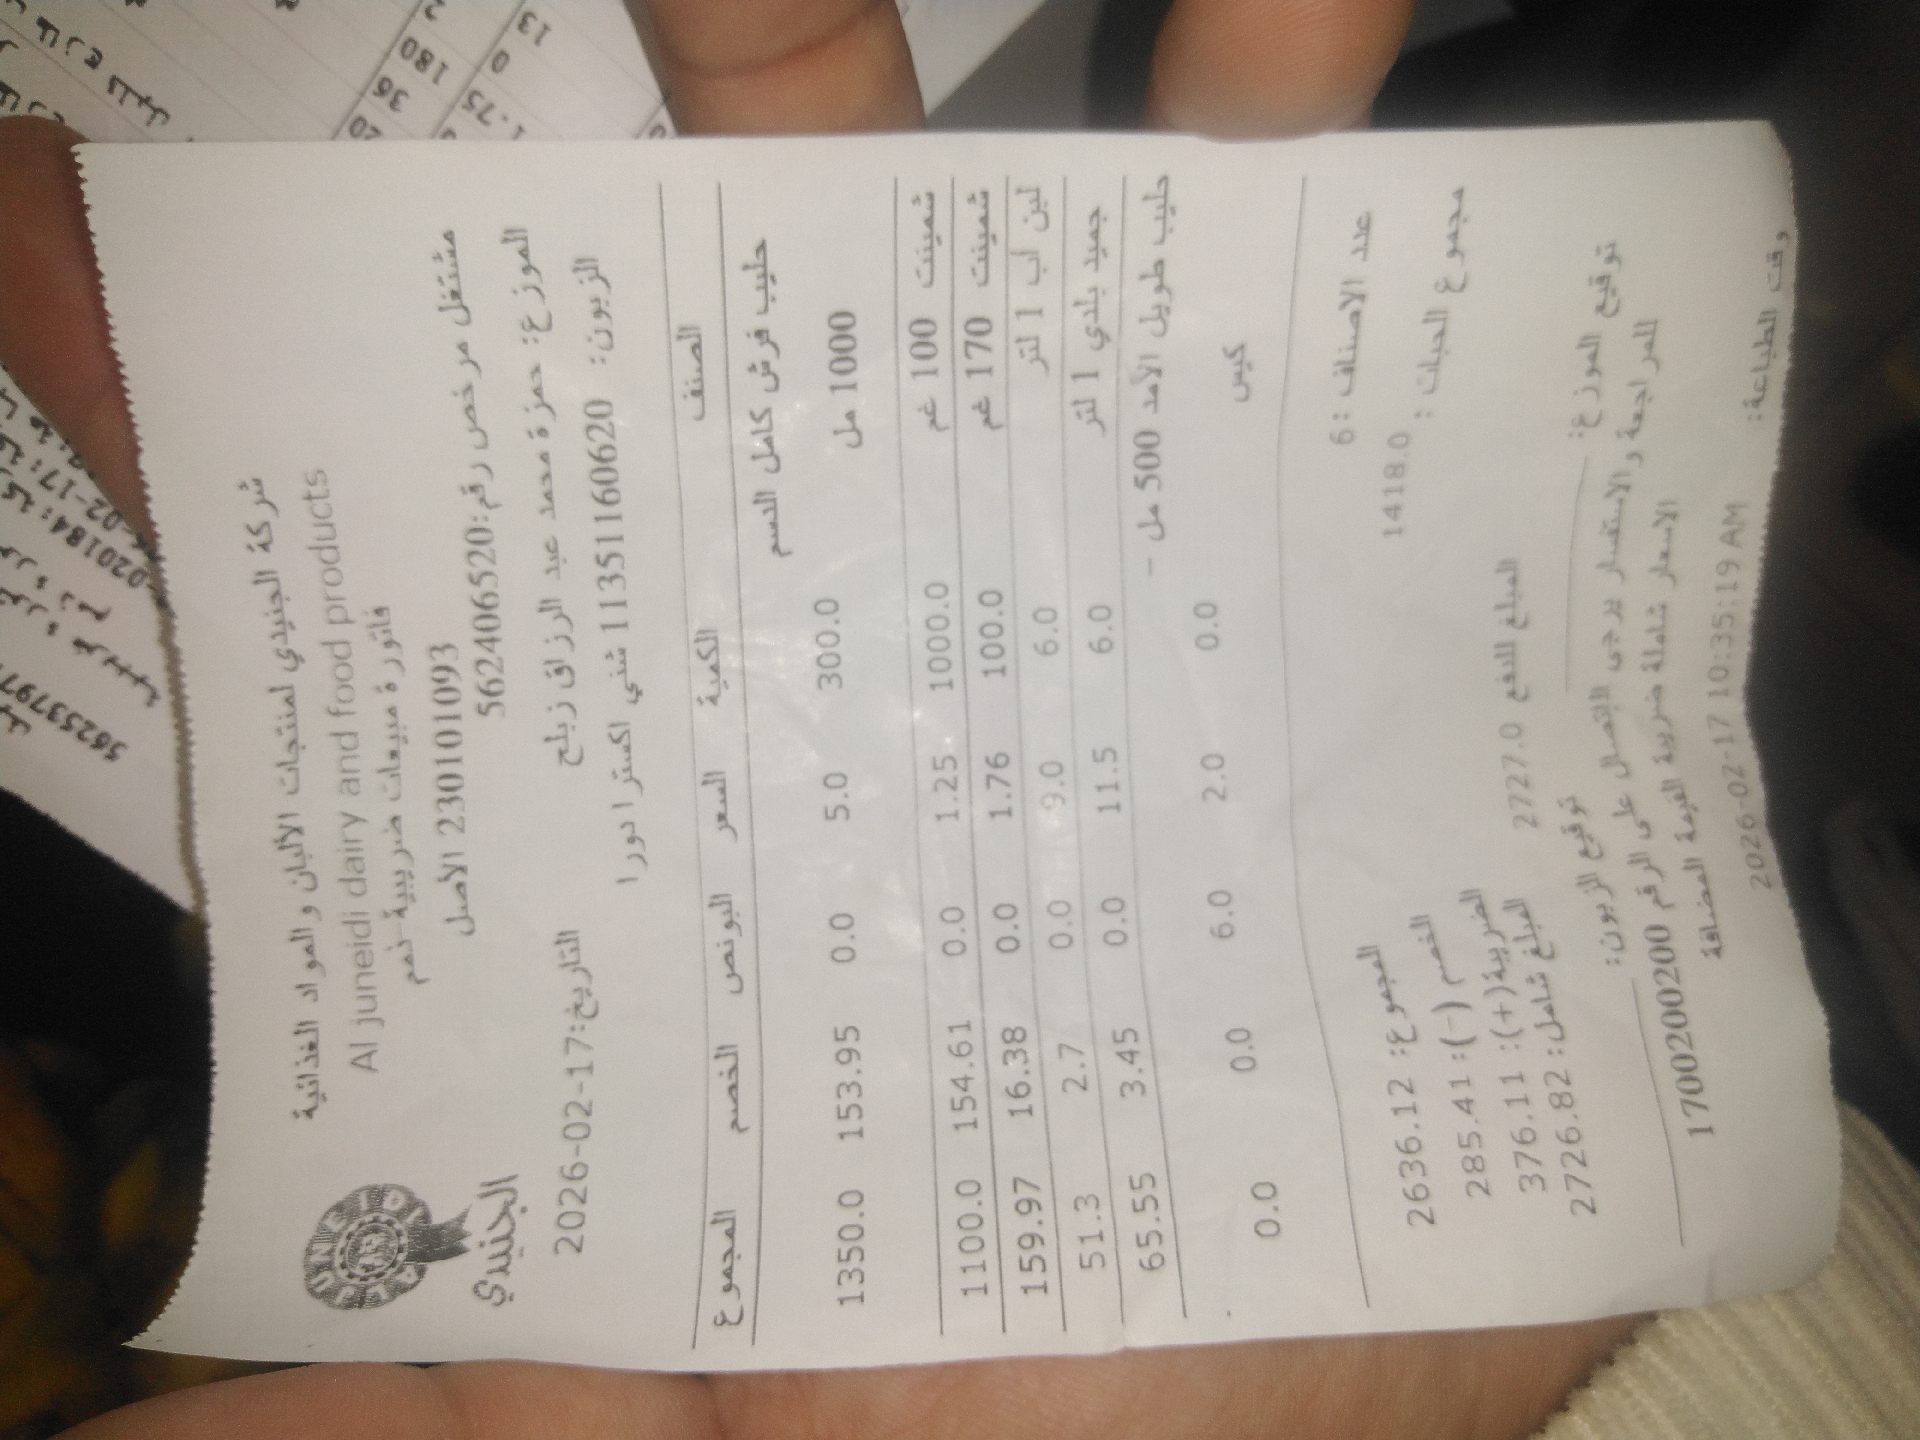 شركة الجنيدي لمنتجات الألبان والمواد الغذائية
Al juneidi dairy and food products
فاتورة مبيعات ضريبية-نعم
230101093 الأصل
مشتغل مرخص رقم:562406520
الجنيدي
الموزع: حمزة محمد عبد الرزاق زبلح
التاريخ:2026-02-17
الزبون: 1135116062 شني اكسترا دورا
الصنف الكمية السعر البونص الخصم المجموع
حليب فرش كامل الدسم
1000 مل 300.0 5.0 0.0 153.95 1350.0
شمينت 100 غم 1000.0 1.25 0.0 154.61 1100.0
شمينت 170 غم 100.0 1.76 0.0 16.38 159.97
لبن اب 1 لتر 6.0 9.0 0.0 2.7 51.3
جميد بلدي 1 لتر 6.0 11.5 0.0 3.45 65.55
حليب طويل الأمد 500 مل -
كيس 0.0 2.0 6.0 0.0 0.0
عدد الاصناف :6
مجموع الحبات :
1418.0
المجموع: 2636.12
الخصم (-): 285.41
الضريبة(+): 376.11
المبلغ شامل: 2726.82
المبلغ للدفع 2727.0
توقيع الموزع:
توقيع الزبون:
للمراجعة والاستفسار يرجى الاتصال على الرقم 1700200200
الاسعار شاملة ضريبة القيمة المضافة
وقت الطباعة:
2026-02-17 10:35:19 AM